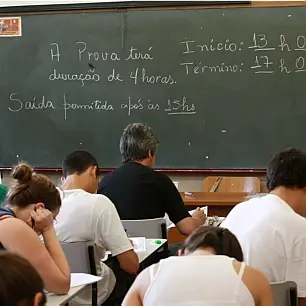 A Prova terá
duração de 4 horas.
Início: 13 h 0
Término: 17 h 0
Saída permitida após às 15hs